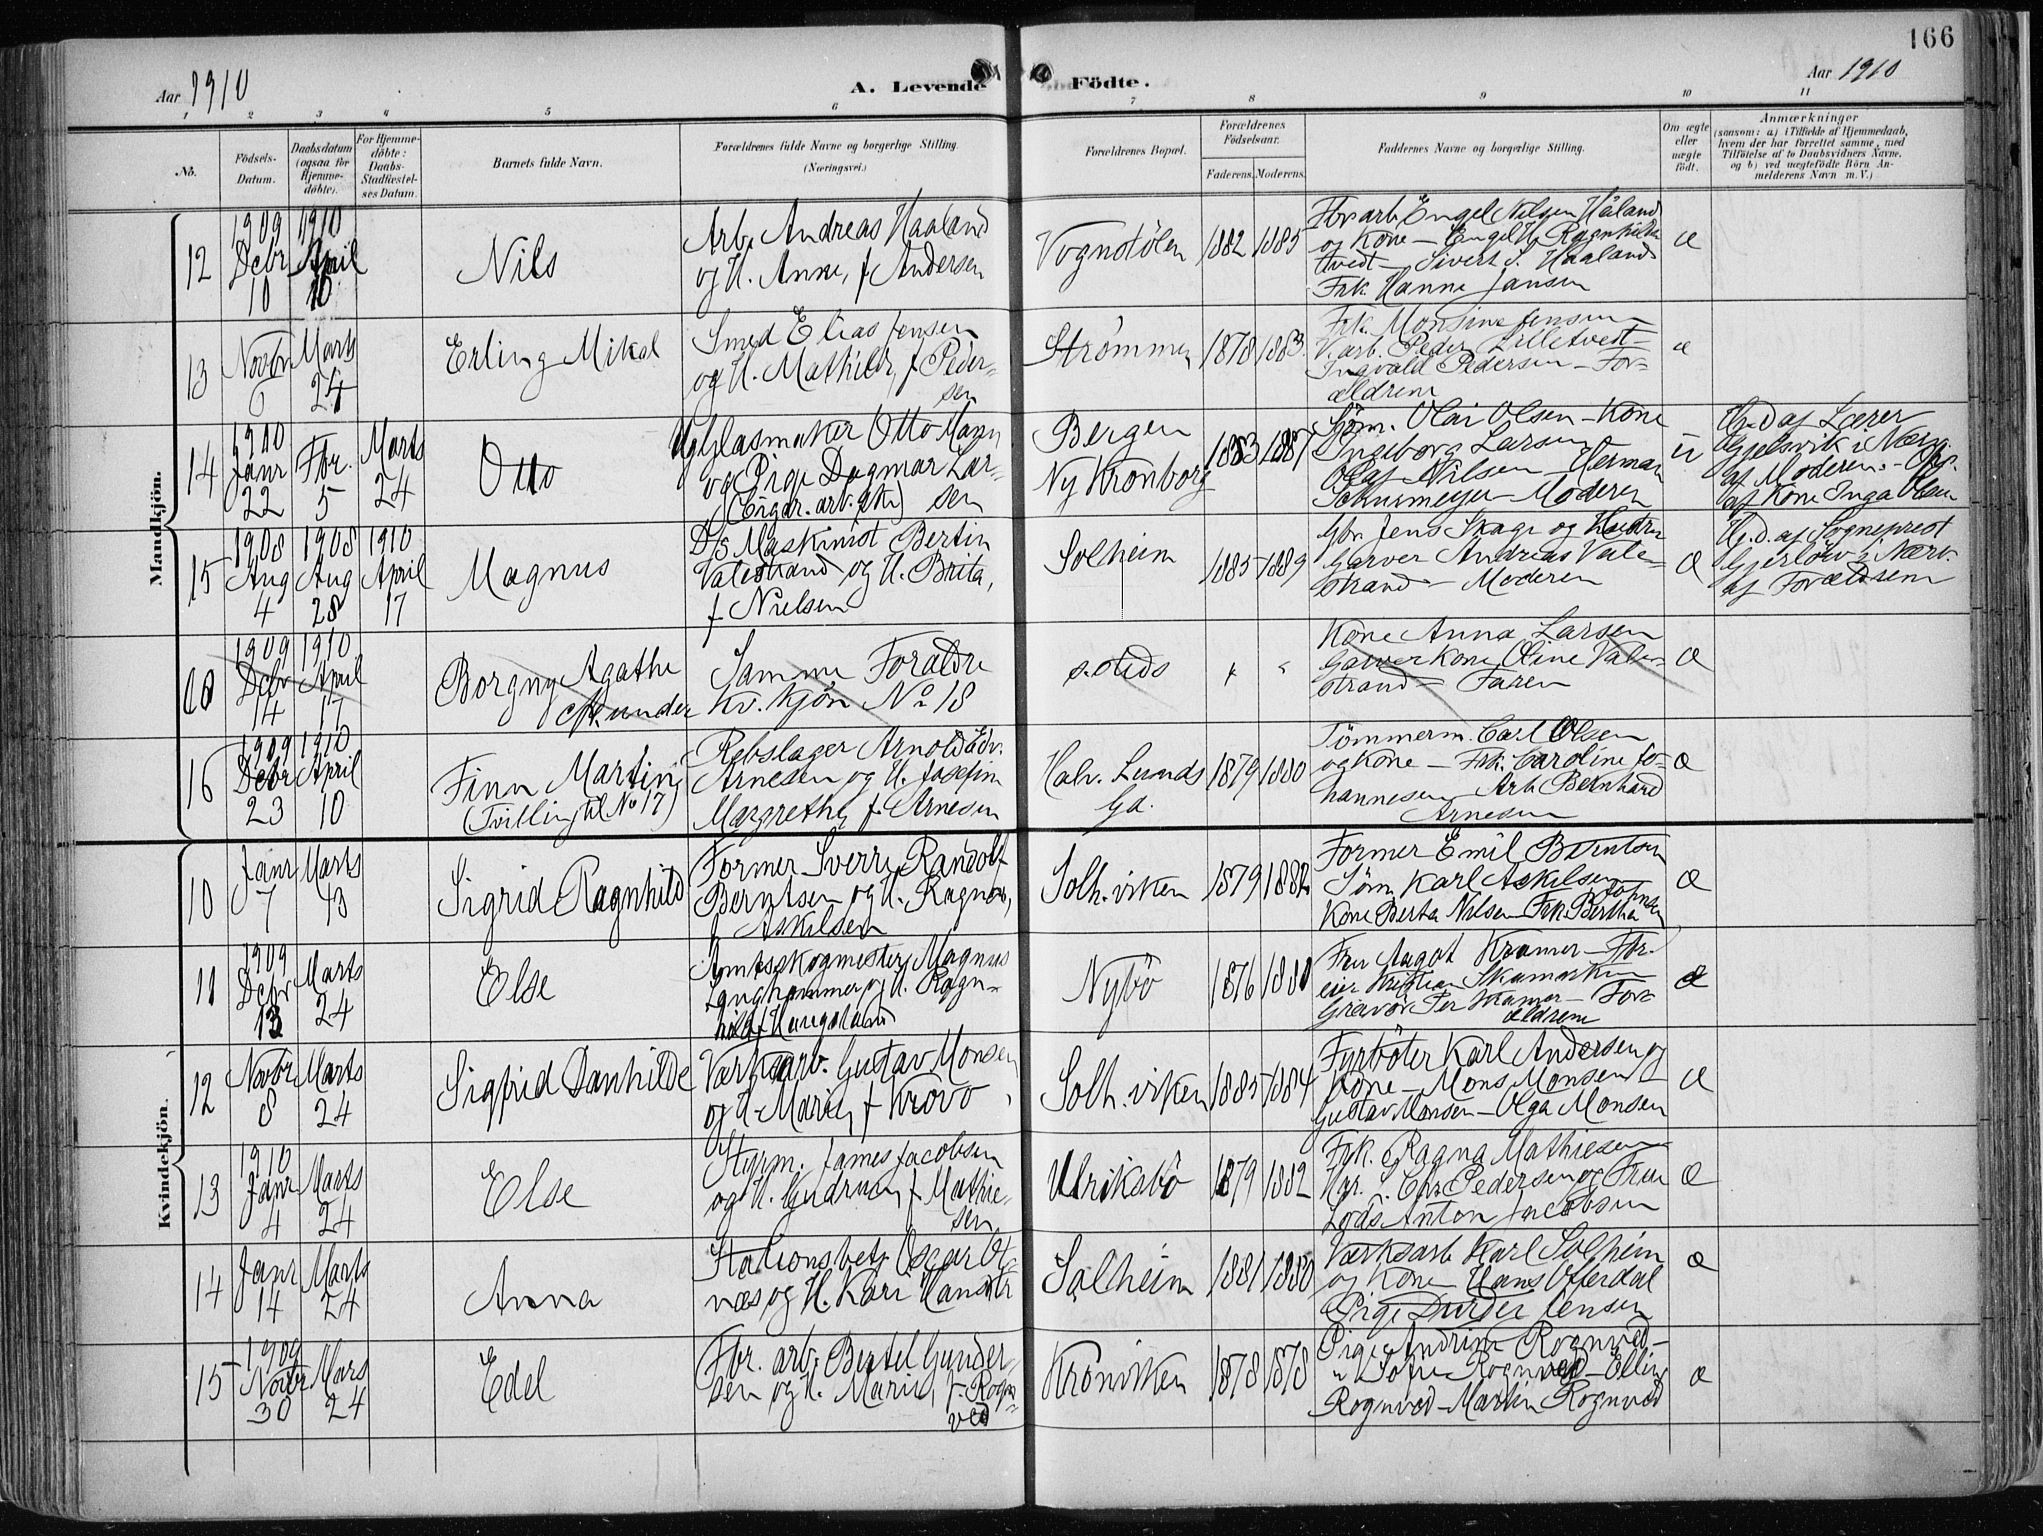 166
Aar 1910
A. Levende Födte.
Aar 1910
1 2 3 4 5 6 7 8 9 10 11
No.
Födsels-Datum.
Daabsdatum (ogsaa for Hjemmedöbte).
For Hjemmedöbte: Daabs-Stadfæstelses Datum.
Barnets fulde Navn.
Forældrenes fulde Navne og borgerlige Stilling. (Næringsvei.)
Forældrenes Bopæl.
Forældrenes Födselsaar.
Faderens. Moderens.
Faddernes Navne og borgerlige Stilling.
Om ægte eller uægte født.
Anmærkninger
(saasom: a) i Tilfælde af Hjemmedaab, hvem der har forrettet samme, med Tilföielse af to Daabsvidners Navne, og b) ved uægtefödte Börn Anmelderens Navn m. V.)
Mandkjön.
12
1909 Debr 10
1910 April 10
Nils
Arb. Andreas Haaland
og H. Anne, f Andersen
Vognstölen
1882 1885
Forsarb Engel Nilsen Håland
og Kone – Engel H. Ragnhild
tvedt – Sivert S. Haaland
Frk. Hanne Jansen
æ
13
Novbr 6
Marts 24
Erling Mikal
Smed Elias Jensen
og H. Mathilde, f Peder-
sen
Strømmen
1878 1883
Frk. Monsine Jensen
Værb. Peder Lilletvett –
Ingvald Pedersen – For-
ældrene
æ
14
1910 Janr 22
Fbr. 5
Marts 24
Otto
Uglasmaker Otto Mann
og Pige Dagmar Lar-
sen
Bergen
Ny Kronborg
1883 1887
Sjöm. Olai Olsen – Kone
Ingeborg Larsen
Olaf Nilsen – Herman
Schurmeyer – Moderen
u
Hj.D af Lærer
Gjelsvik i Nærv.
af Moderen. – Og.
af Kone Inga Olsen
15
1908 Aug 4
1908 Aug 28
1910 April 17
Magnus
D/s Maskinist Bertin
Valestrand og H. Brita,
f Nielsen
Solheim
1885 1889
Gbr. Jens Skage og Hustru
Garver Andreas Vale-
strand – Moderen
æ
Hj.D. af Sogneprest
Gjerløw i Nærv.
af Forældrene
1909 Debr 14
1910 April 17
Borgny Agathe
Samme Forældre
Kv. kjön No 18
s. steds
Kone Anna Larsen
Garverkone Oline Vale-
strand – Faren
æ
16
1909 Debr 23
1910 April 10
Finn Martin
(Tvilling til No 17)
Rebslager Arnold Edv.
Arnesen og H. Josefine
Margrethe, f. Arnesen
Halv. Lunds
Gd.
1879 1880
Tömmerm. Carl Olsen
og Kone – Frk. Caroline Jo-
hannesen Arb Bernhard
Arnesen
æ
Kvindekjön.
10
Janr 7
Marts 13
Sigrid Ragnhild
Former Sverre Randolf
Berntsen og H. Ragna,
f Askilsen
Solh. viken
1879 1882
Former Emil Berntsen
Söm. Karl Askilsen
Kone Berta Nilsen – Frk. Bertha Johnsen
æ
11
1909 Debr 13
Marts 24
Else
Amtsskogmester Magnus
Langhammer og H. Ragn-
hild f Haugstand
Nybö
1876 1880
Fru Aagot Kramer – For-
Gravör Per Kramer – For-
ældrene
æ
12
Novbr 8
Marts 24
Sigfrid Danhilde
Værksarb. Gustav Monsen
og H Marie, f Krövo
Solh. viken
1885 1884
Fyrböter Karl Andersen og
Kone – Mons Monsen –
Gustav Monsen – Olga Monsen
æ
13
1910 Janr 4
Marts 24
Else
Styrm. James Jacobsen
og H. Gudrun, f Mathie-
sen
Ulriksbö
1879 1882
Frk. Ragna Mathiesen
Hr. S. Chr. Pedersen og Frue
Lods Anton Jacobsen
æ
14
Janr 14
Marts 24
Anna
Stationsbetj. Oscar Ot-
næs og H. Kari Hansdtr
Solheim
1881 1880
Værksarb Karl Solheim
og Kone Hans Offerdal
Pige Jensen
æ
15
1909 Novbr 30
Mars 24
Edel
Fbr. arb. Bertel Gunder-
sen og H. Marie, f. Rogn-
ved
Kronviken
1878 1878
Pige Andrine Rognved –
" Sofie Rognved – Elling
Rognved – Martin Rognved
æ